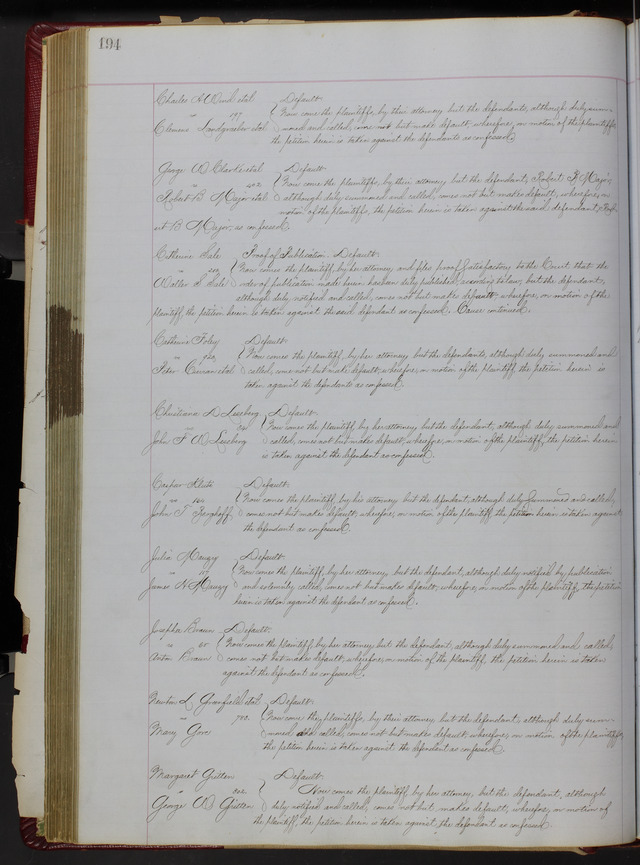 194
Charles A. Wind et al. Default.
197 Now come the plaintiffs, by their attorney but the defendants, although duly sum-
Clemens Landgraeber et al. moned and called, come not but make default, wherefore, on motion of the plaintiffs,
the petition herein is taken against the defendants as confessed.
George W. Clarke et al. Default.
402 Now come the plaintiffs, by their attorney but the defendant, Robert B. Major,
Robert B. Major et al. although duly summoned and called, comes not but makes default; wherefore, on
motion of the plaintiffs, the petition herein is taken against the said defendant, Rob-
ert B. Major, as confessed.
Catherine Sale Proof of Publication. Default.
Now comes the plaintiff, by her attorney and files proof satisfactory to the Court that the
Walter S. Sale order of publication made herein has been duly published according to law, but the defendant,
although duly notified and called, comes not but makes default wherefore, on motion of the
plaintiff, the petition herein is taken against the said defendant as confessed. Cause continued.
Catherine Foley Default.
Now comes the plaintiff, by her attorney but the defendants, although duly summoned and
Peter Curran et al. called, come not but make default; wherefore, on motion of the plaintiff the petition herein is
taken against the defendants as confessed.
Christiana D. Leesberg Default.
Now comes the plaintiff, by her attorney but the defendant, although duly summoned and
John F. W. Leesberg called, comes not but makes default, wherefore, on motion of the plaintiff, the petition herein
is taken against the defendant as confessed.
Caspar Default.
Now comes the plaintiff by his attorney but the defendant, although duly summoned and called,
John T. Berghoff comes not but makes default; wherefore, on motion of the plaintiff the petition herein is taken against
the defendant as confessed.
Julia Mauzy Default.
Now comes the plaintiff, by her attorney but the defendant, although duly notified by publication
James H. Mauzy and solemnly called, comes not but makes default; wherefore, on motion of the plaintiff, the petition
herein is taken against the defendant as confessed.
Josepha Braun Default.
Now comes the plaintiff, by her attorney but the defendant, although duly summoned and called,
Anton Braun comes not but makes default; wherefore, on motion of the plaintiff, the petition herein is taken
against the defendant as confessed.
Newton L. Granfield et al. Default.
Now come the plaintiffs, by their attorney but the defendant, although duly sum-
Mary Gore moned and called, comes not but makes default wherefore, on motion of the plaintiffs,
the petition herein is taken against the defendant as confessed.
Margaret Gritten Default.
802 Now comes the plaintiff, by her attorney, but the defendant, although
George W. Gritten duly notified and called, comes not but makes default, wherefore, on motion of
the plaintiff, the petition herein is taken against the defendant as confessed.